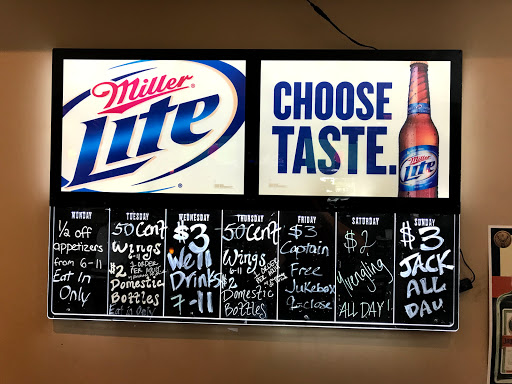 Miller
Lite
CHOOSE
TASTE.
Miller
Lite
MONDAY
1/2 off
appetizers
from 6-11
Eat in
Only
TUESDAY
50 Cent
Wings
6-11
$2
Domestic
Bottles
Eat in Only
WEDNESDAY
$3
Well
Drinks
7-11
THURSDAY
50 Cent
Wings
6-11
$2
Domestic
Bottles
FRIDAY
$3
Captain
Free
Jukebox
9-close
SATURDAY
$2
Yuengling
ALL DAY!
SUNDAY
$3
JACK
ALL
DAY